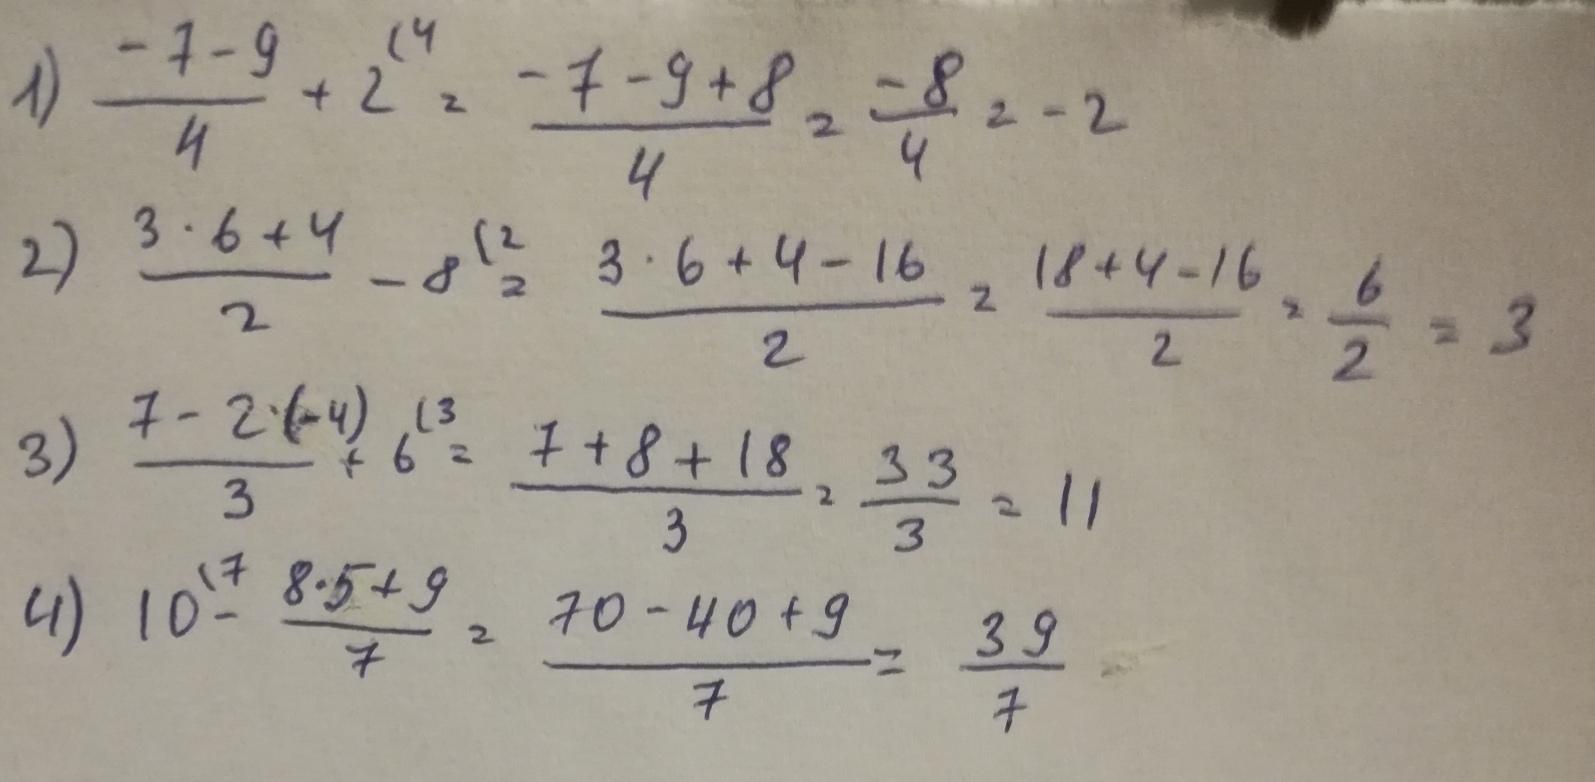 1) (-7-9)/4 + 2(4 = (-7-9+8)/4 = -8/4 = -2
2) (3·6+4)/2 - 8(2 = (3·6+4-16)/2 = (18+4-16)/2 = 6/2 = 3
3) (7-2·(-4))/3 + 6(3 = (7+8+18)/3 = 33/3 = 11
4) 10(7 - (8·5+9)/7 = (70-40+9)/7 = 39/7